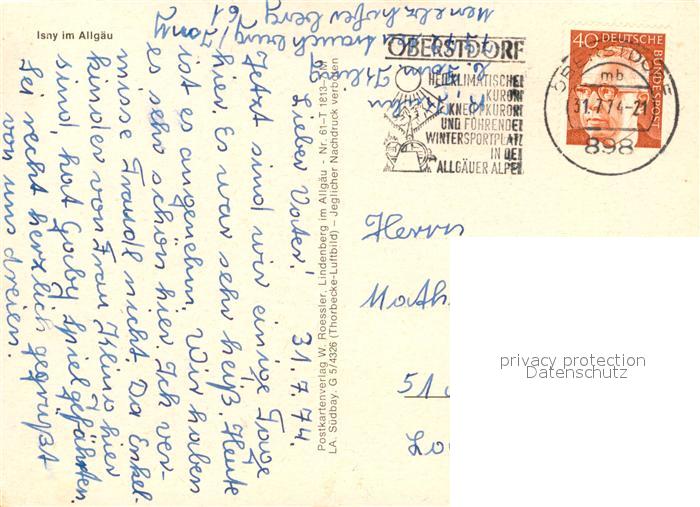 Isny im Allgäu
31.7.74.
Lieber Vater!
Jetzt sind wir einige Tage
hier Es war sehr heiß. Heute
ist es angenehm. Wir haben
es sehr schön hier Ich ver-
misse Traudl nicht Da Enkel-
kinder von Frau hier
sind, hat Gaby Spielgefährten.
Sei recht herzlich gegrüßt
von uns dreien.
Postkartenverlag W. Roessler, Lindenberg im Allgäu - Nr. 61-T 1813-
LA. Südbay. G 5/4326 (Thorbecke-Luftbild) – Jeglicher Nachdruck verboten
OBERSTDORF
HEILKLIMATISCHER
KURORT
KNEIPPKURORT
UND FÜHRENDER
WINTERSPORTPLATZ
IN DEN
ALLGÄUER ALPEN
40 DEUTSCHE
BUNDESPOST
OBERSTDORF
mb
31.7.74-21
898
Herrn
Math
51
privacy protection
Datenschutz